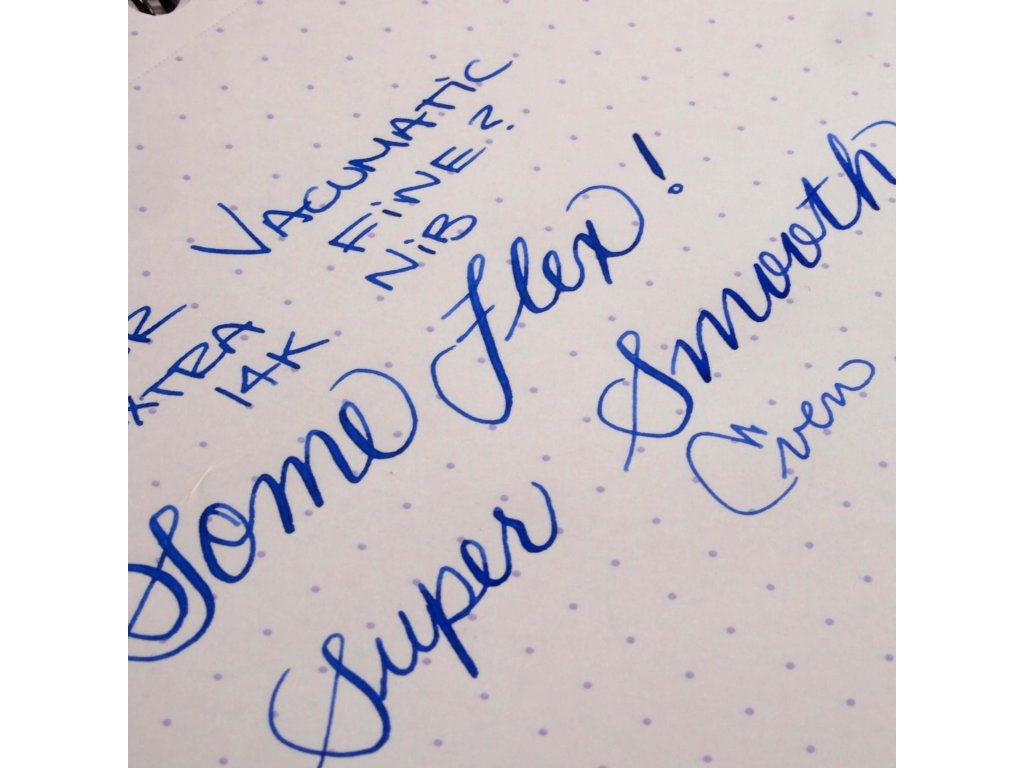 VACUMATIC
FINE?
NIB
XTRA
14K
Some Flex!
Super Smooth
even